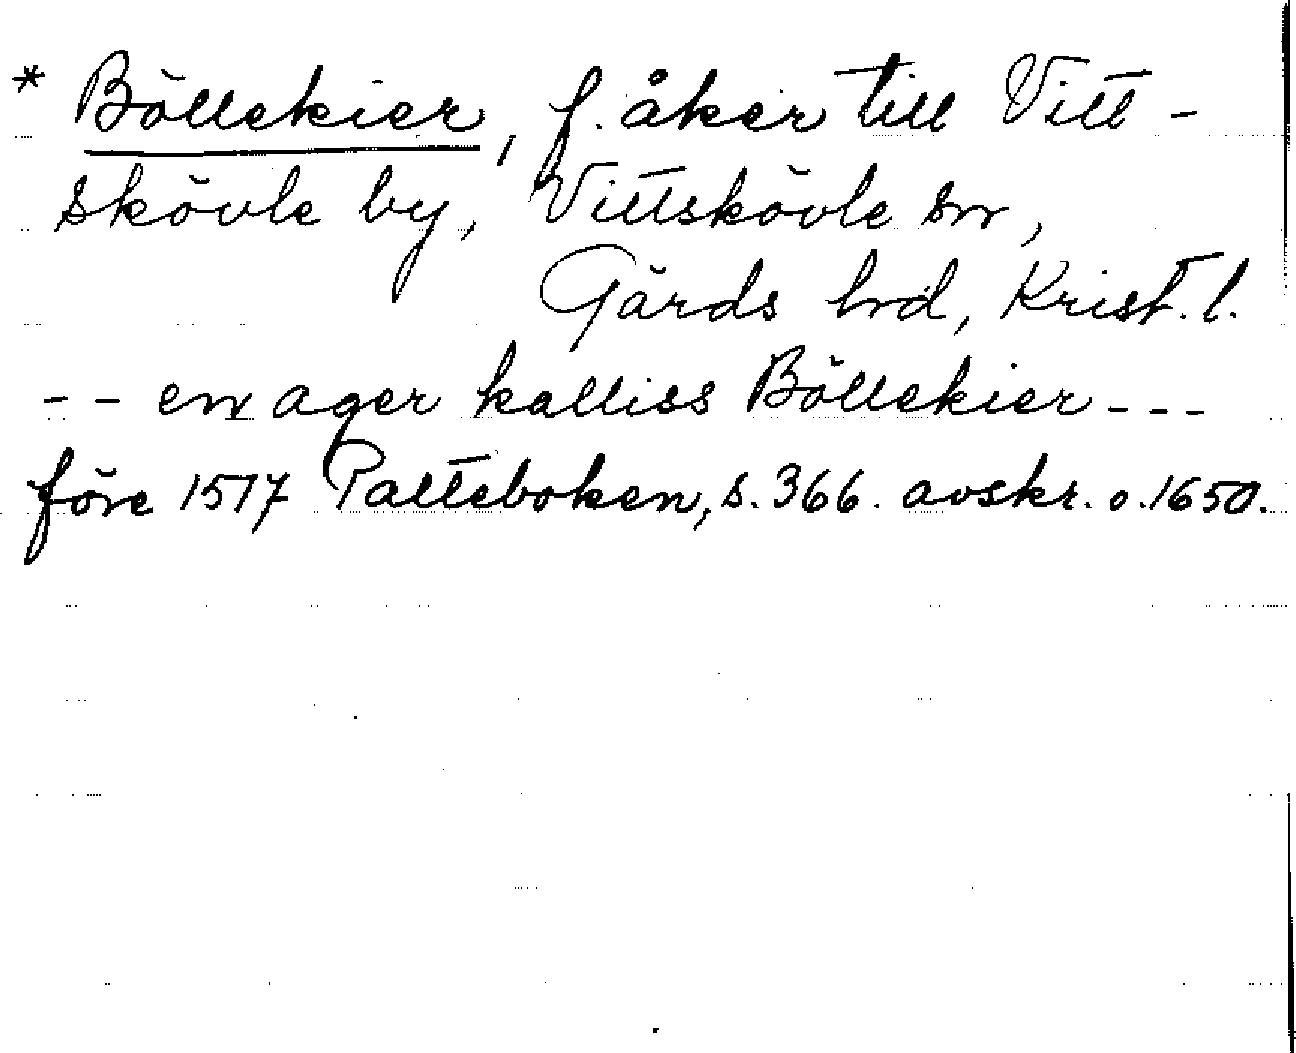 * Böllekier, f. åker till Vitt-
skövle by, Vittskövle sn,
Gärds hrd, Krist. l.
-- en ager kalliss Böllekier ---
före 1517 Palteboken, s. 366. avskr. o. 1650.